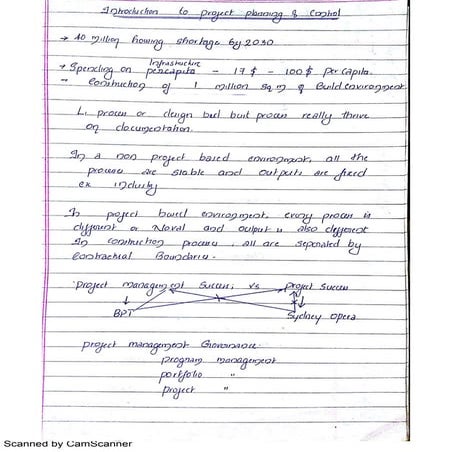 Introduction to project planning & Control
→ 40 million housing shortage by 2030
Infrastructure
→ Spending on percapita - 17 $ - 100 $ Per capita.
- Construction of 1 million sq m of Build environment
L. process or design bid built process really thrive
on documentation.
In a non project based environment, all the
process are stable and outputs are fixed
ex industry
In project based environment, every process is
different or Noval and output is also different
In construction process, all are seperated by
contractual Boundaries.
Project management Success, vs project Success
BPT Sydney opera
project management Governance.
program management
portfolio "
project "
Scanned by CamScanner